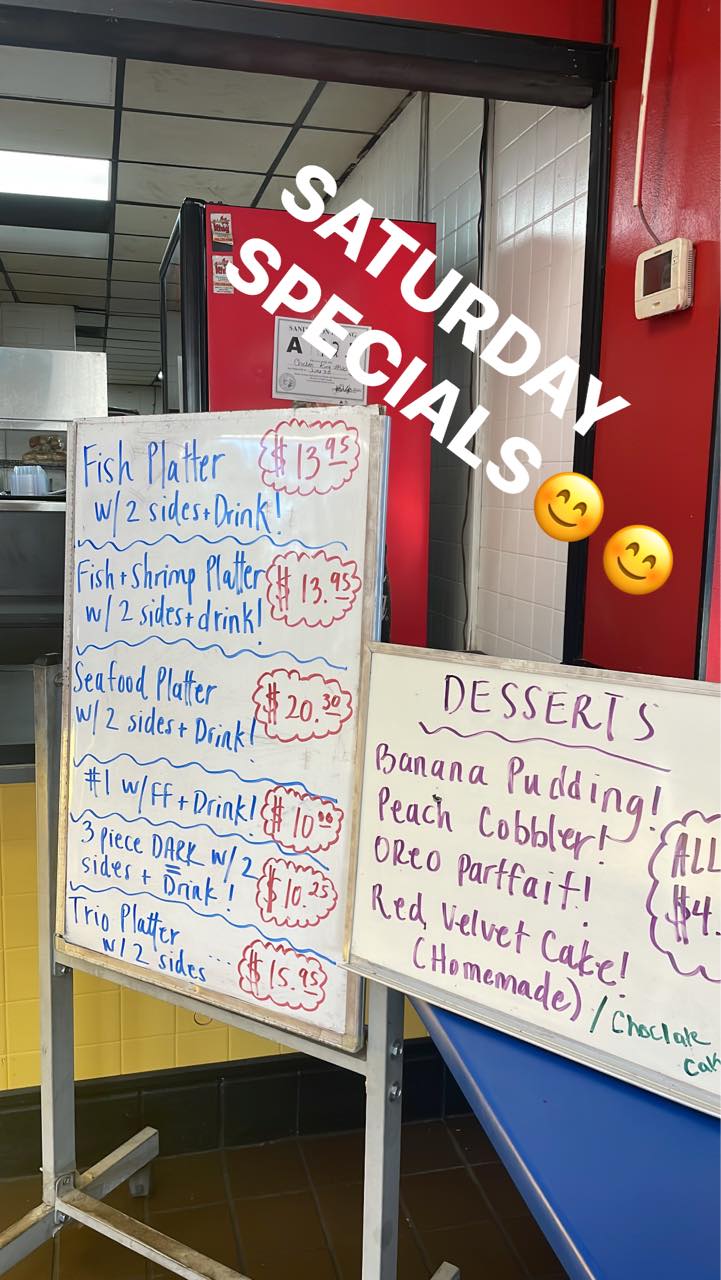 SATURDAY
SPECIALS😊😊
A
Fish Platter $13.95
w/2 sides+Drink!
Fish+Shrimp Platter $13.95
w/2 sides+drink!
Seafood Platter $20.30
w/2 sides+Drink!
#1 w/FF+Drink! $10.00
3 piece DARK w/2
sides + Drink! $10.25
Trio Platter
w/2 sides .... $15.95
DESSERTS
Banana Pudding!
Peach Cobbler!
OREO Parffait!
Red Velvet Cake!
(Homemade)
/Choclate
Cak
ALL
$4.